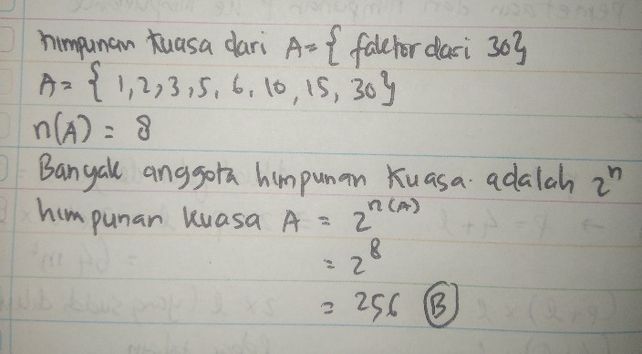 himpunan kuasa dari A = { faktor dari 30}
A = { 1, 2, 3, 5, 6, 10, 15, 30}
n(A) = 8
Banyak anggota himpunan kuasa adalah 2ⁿ
himpunan kuasa A = 2ⁿ⁽ᴬ⁾
= 2⁸
= 256 Ⓑ